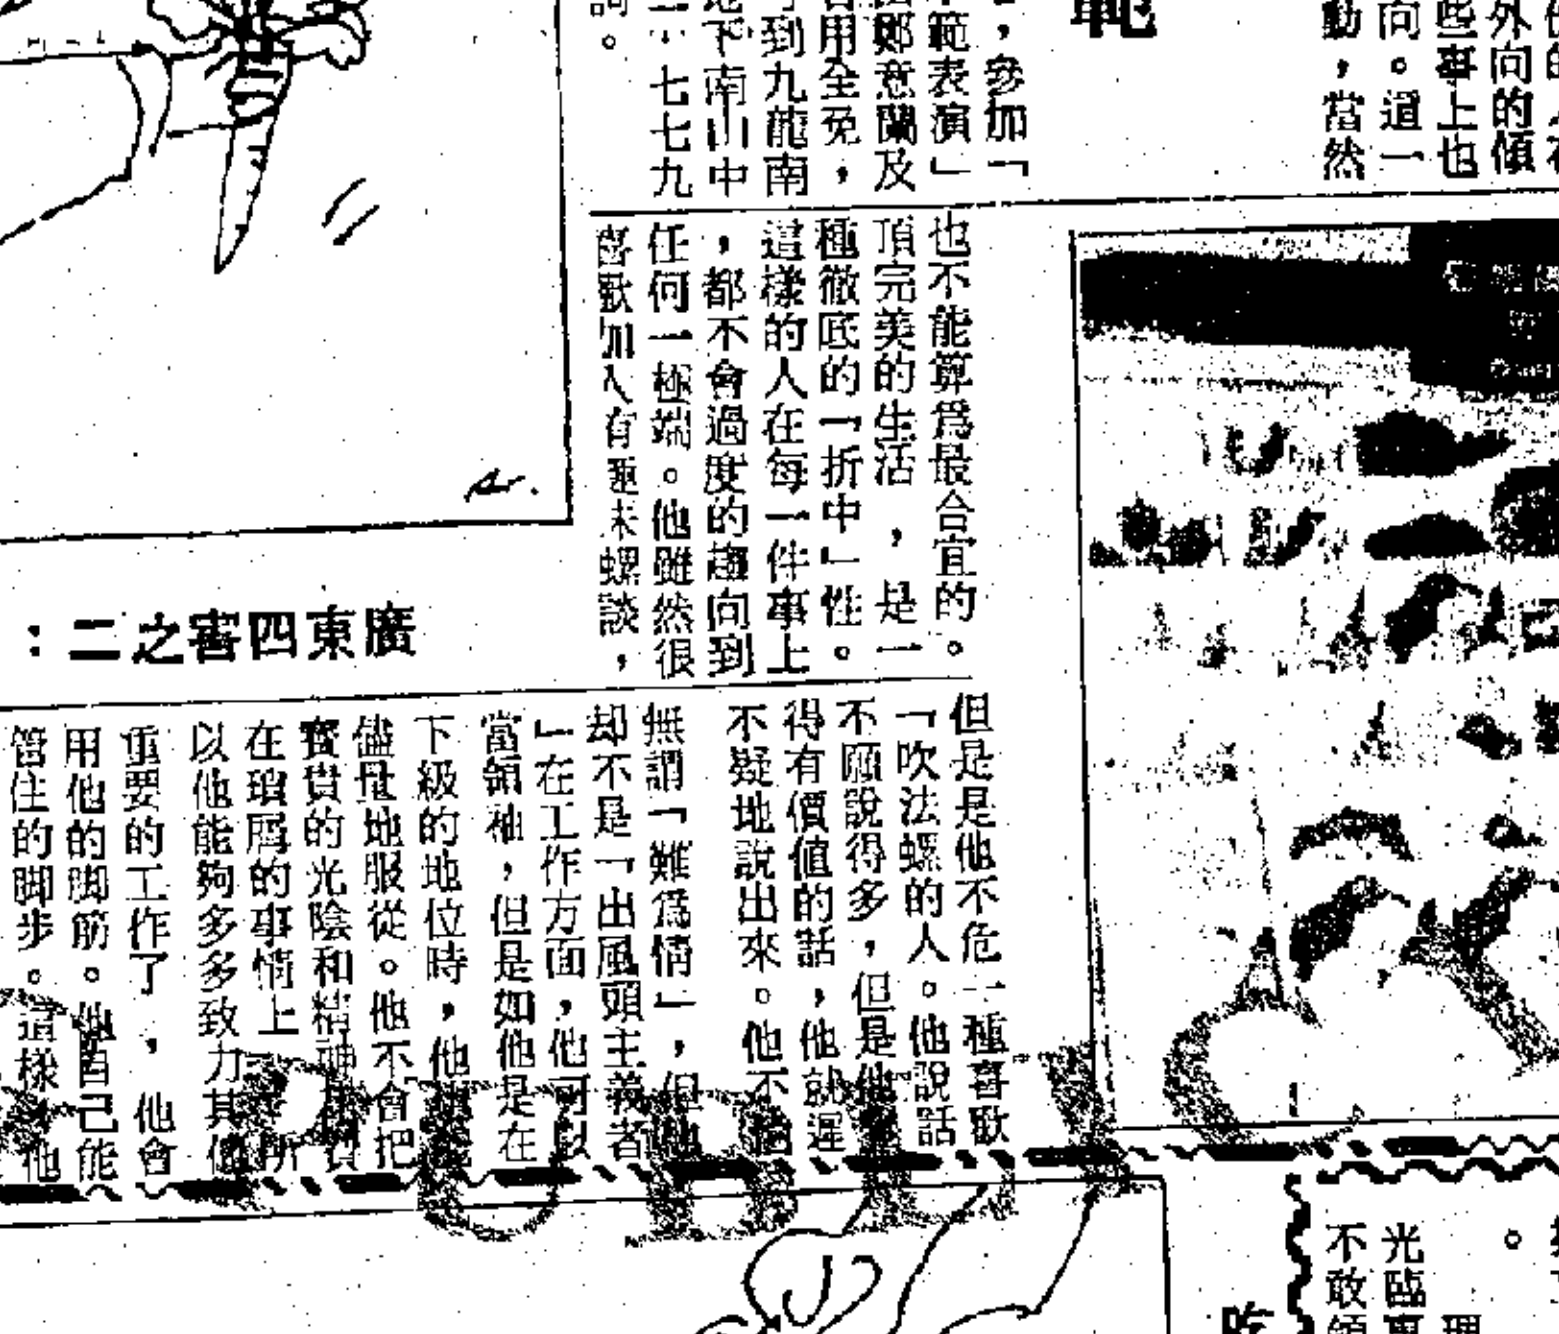 範
動，當然
向。這一
些事上也
外向的傾
，參加「
範表演」
鄭意蘭及
用全免，
到九龍南
地下南山中
七七九
詢。
也不能算爲最合宜的。
頂完美的生活，是一
種徹底的「折中」性。
這樣的人在每一件事上
，都不會過度的趨向到
任何一極端。他雖然很
喜歡加入有趣味螺談，
但是是他不危一種喜歡
「吹法螺的人。他說話
不願說得多，但是他
得有價值的話，他就遲
不疑地說出來。他不
無謂「難爲情」，但他
却不是「出風頭主義者
」在工作方面，他可以
當領袖，但是如他是在
下級的地位時，他
儘量地服從。他不會把
寶貴的光陰和精神
在瑣屑的事情上，所
以他能夠多多致力其他
重要的工作了，他會
用他的脚筋。他自己能
管住的脚步。這樣，他
廣東四害之二：
光臨
不敢領
吃
理